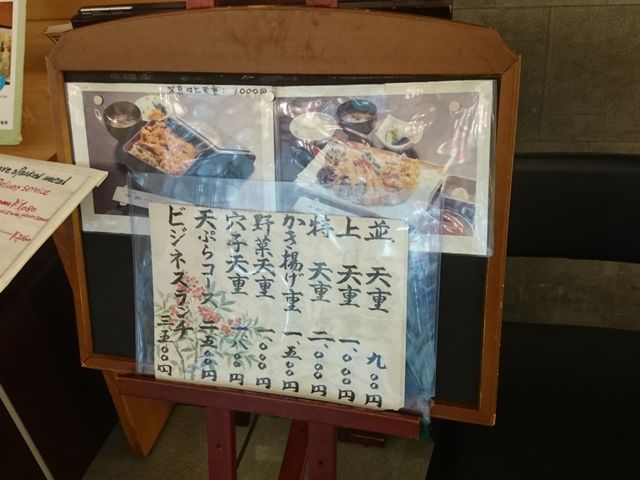 写真は上天重: 1,000円
並 天重 九〇〇円
上 天重 一、〇〇〇円
特 天重 二、〇〇〇円
かき揚げ重 一、五〇〇円
野菜天重 一、〇〇〇円
穴子天重
天ぷらコース 二、五〇〇円
ビジネスランチ 三、五〇〇円
packed meal
service
¥1,080